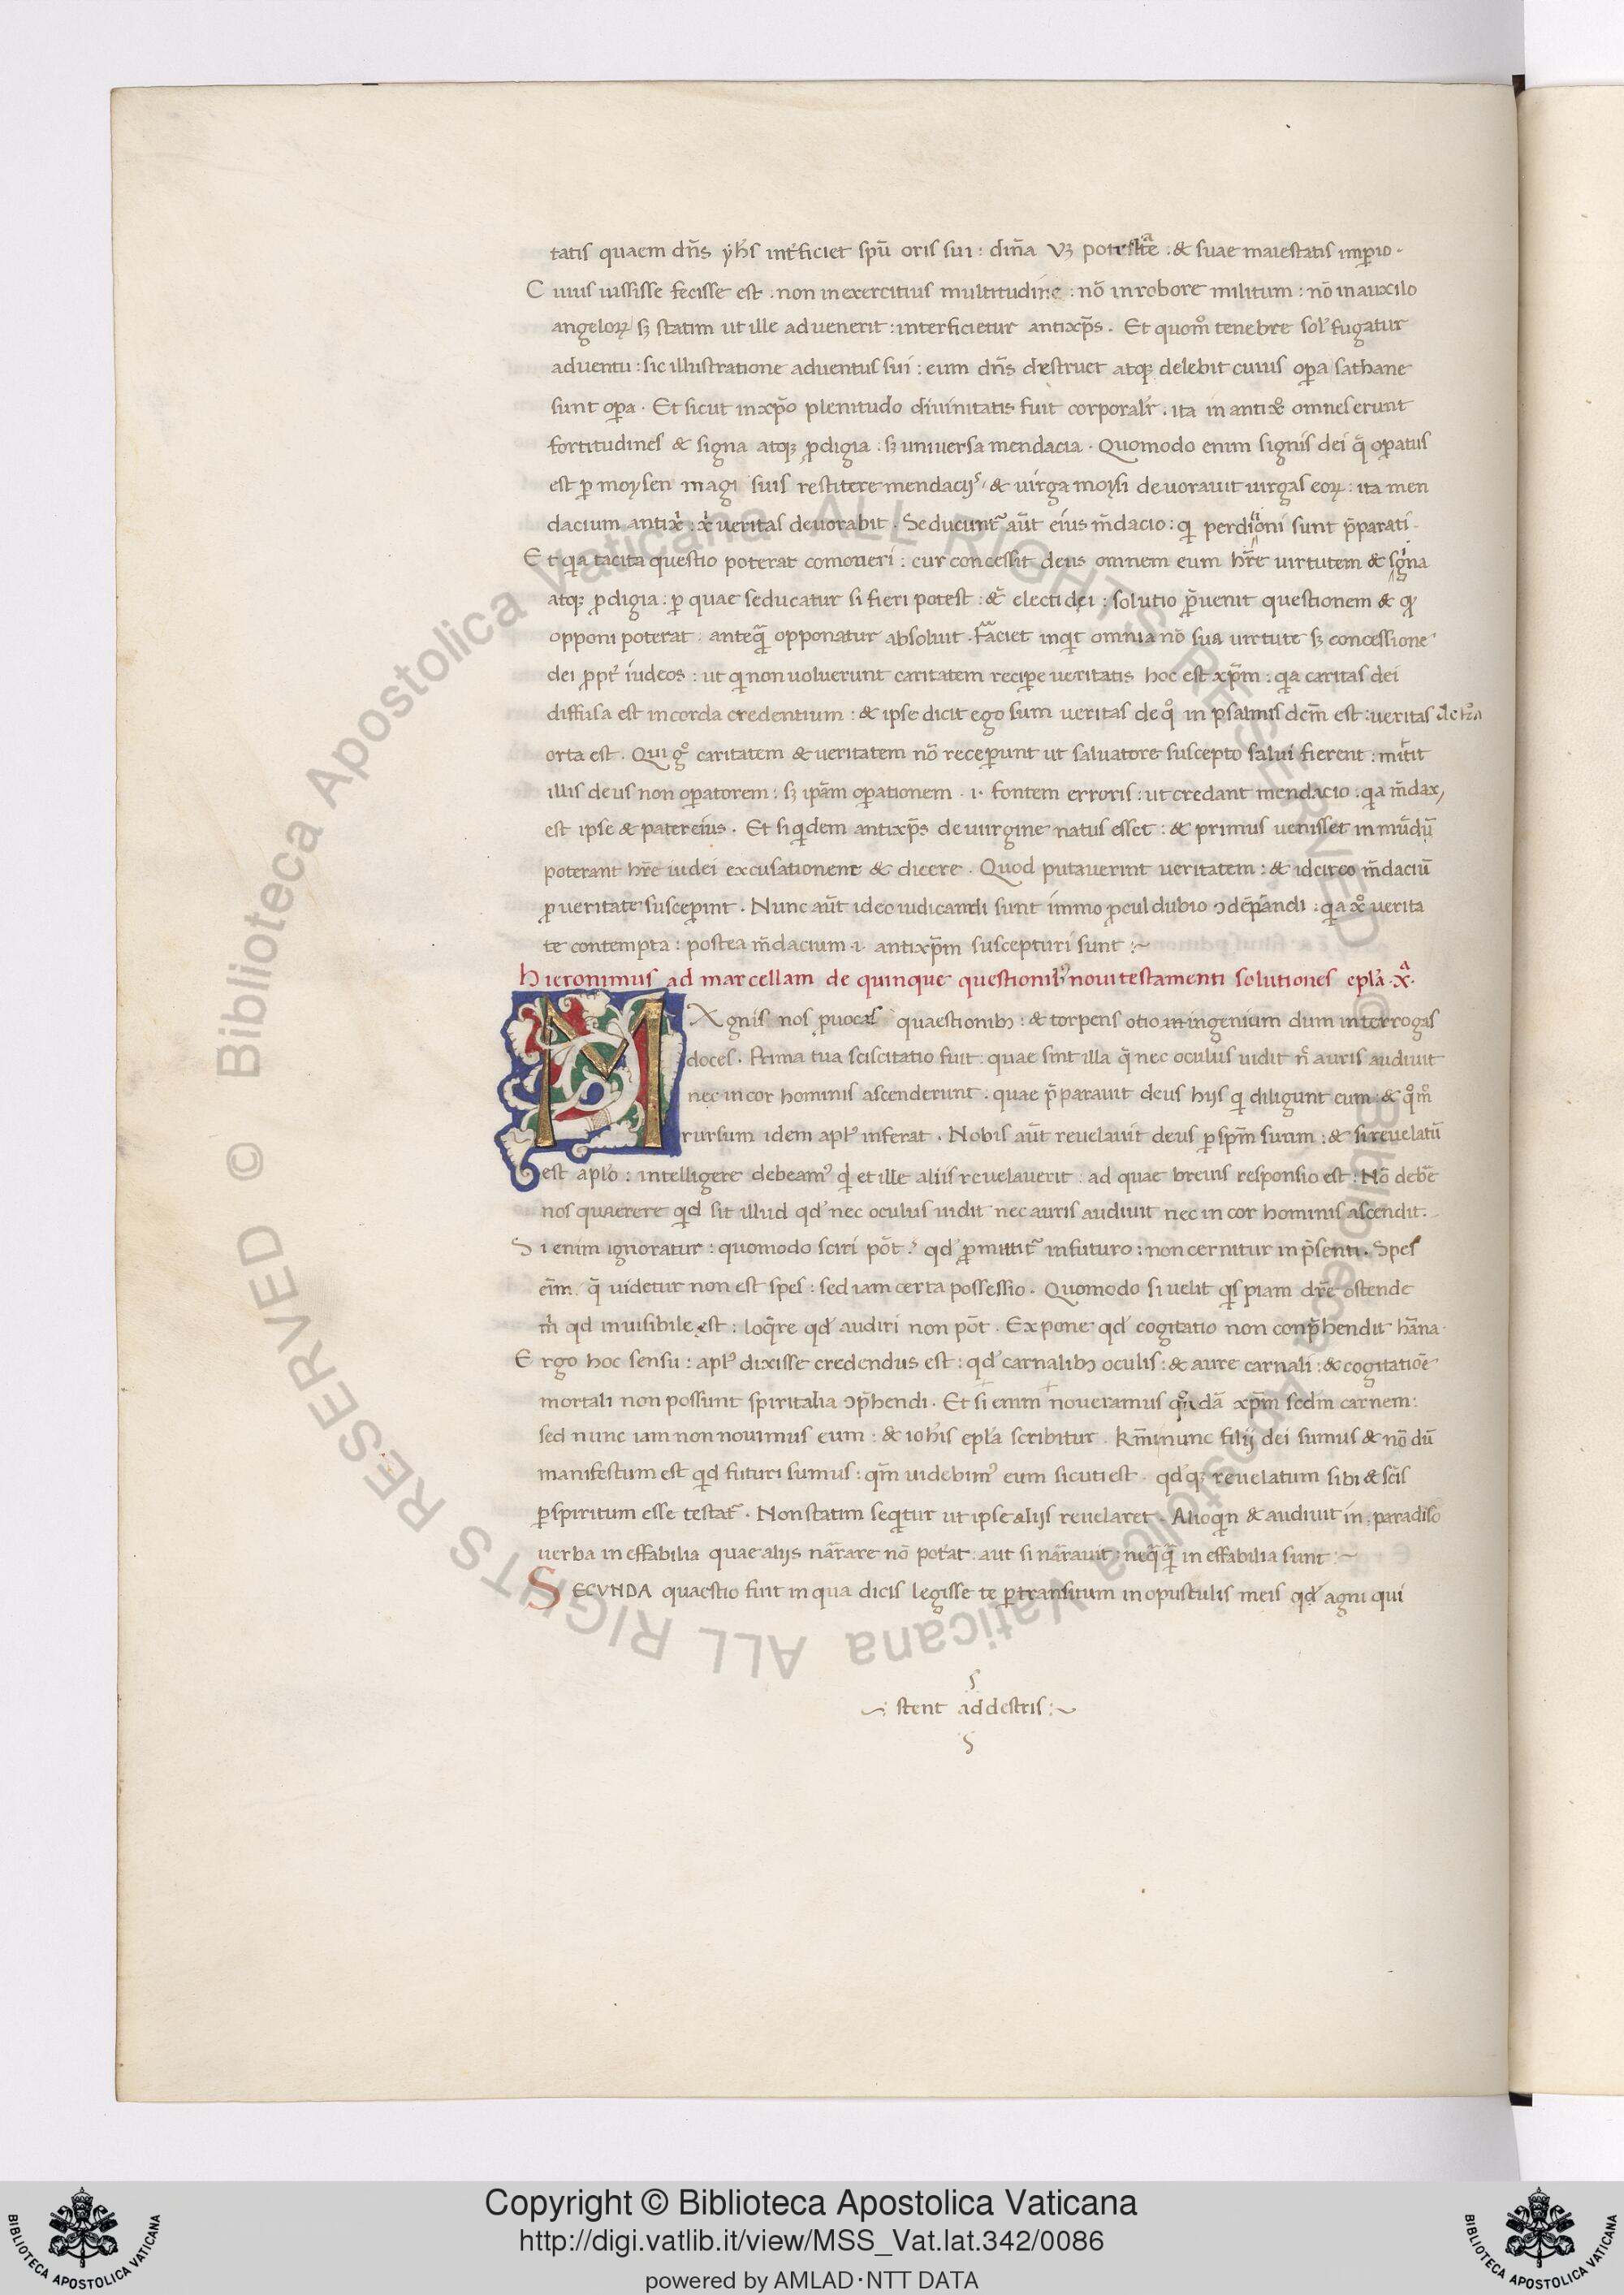 tatis quaem dn̄s yh̄s int̄ficiet spū oris sui : diuīa vꝫ potestate . & suae maiestatis imꝑio .
Cuius iussisse fecisse est . non in exercitius multitudine : nō in robore militum : nō in auxilo
angeloꝝ sꝫ statim ut ille advenerit : interficietur antixp̄s . Et quomō tenebre sol' fugatur
adventu : sic illustratione adventus sui : eum dn̄s destruet atqꝫ delebit cuius oꝑa sathane
sunt oꝑa . Et sicut in xp̄o plenitudo divinitatis fuit corporalr̄ . ita in antixō omnes erunt
fortitudines & signa atqꝫ ꝓdigia : sꝫ universa mendacia . Quomodo enim signis dei q̄ oꝑatus
est ꝑ moysen magi suis restitere mendacijs & virga moysi devoravit virgas eoꝝ : ita men
dacium antixi : xi veritas devorabit . Seducunt᷑ aūt eius m̄dacio : qi perdiōni sunt p̄parati .
Et qia tacita questio poterat comoveri : cur concessit deus omnem eum hr̄e virtutem & signa
atqꝫ ꝓdigia : ꝑ quae seducatur si fieri potest : & electi dei : solutio p̄venit questionem & qͩ
opponi poterat anteq̄ opponatur absoluit . Faciet inqit omnia nō sua virtute sꝫ concessione
dei ꝓpt' iudeos : ut qi non voluerunt caritatem reciꝑe veritatis hoc est xp̄m : qia caritas dei
diffusa est in corda credentium : & ipse dicit ego sum veritas de qo in psalmis dcm̄ est : veritas de tr̄a
orta est . Qui go caritatem & veritatem nō receꝑunt ut salvatore suscepto salvi fierent : mittit
illis deus non oꝑatorem : sꝫ ip̄am oꝑationem . i . fontem erroris : ut credant mendacio : qia m̄dax
est ipse & pater eius . Et siqidem antixp̄s de virgine natus esset : & primus venisset in mūdū
poterant hr̄e iudei excusationem & dicere . Quod putaverint veritatem : & idcirco m̄daciū
ꝓ veritate susceꝑint . Nunc aūt ideo iudicandi sunt immo ꝓcul dubio ↄdēpnandi : qia xo verita
te contempta : postea m̄dacium . i . antixp̄m suscepturi sunt :~
Hieronimus ad marcellam de quinque questionibꝰ novi testamenti solutiones epl'a . xa .
MAgnis nos ꝓvocas quaestionibꝫ : & torpens otio in ingenium dum interrogas
doces . Prima tua sciscitatio fuit : quae sint illa q̄ nec oculus vidit n̄ auris audivit
nec in cor hominis ascenderunt . quae p̄paravit deus hijs qi diligunt eum : & qōmō
rursum idem apl's inferat . Nobis aūt revelavit deus ꝑ spm̄ suum : & si revelatū
est apl'o : intelligere debeamꝰ qd et ille aliis revelaverit . ad quae brevis responsio est : Nō deb'e
nos quaerere qid sit illud qd' nec oculus vidit nec auris audivit nec in cor hominis ascendit .
Si enim ignoratur : quomodo sciri pōt ? qd' ꝓmittit᷑ in futuro : non cernitur in p̄senti . Spes
eīm q̄ videtur non est spes : sed iam certa possessio . Quomodo si velit qispiam dr̄e ostende
mi qd invisibile est : loq̄re qd' audiri non pōt . Expone qd' cogitatio non conp̄hendit hāna .
Ergo hoc sensu : apl's dixisse credendus est : qd' carnalibꝫ oculis : & aure carnali : & cogitatiōe
mortali non possunt spiritalia ↄp̄hendi . Et si enim noveramus qōndā xp̄m secdm carnem :
sed nunc iam non novimus eum : & ioh̄is epl'a scribitur . Km̄i nunc filij dei sumus & nō dū
manifestum est qd futuri sumus : qm̄ videbimꝰ eum sicuti est . qd'qꝫ revelatum sibi & scīs
ꝑ spiritum esse testat᷑ . Non statim seqitur ut ipse alijs revelaret . Alioqin & audivit in paradiso
verba in effabilia quae alijs nārare nō pot'at : aut si nāravit : neq̄q̄ in effabilia sunt :~
SECVNDA quaestio fuit in qua dicis legisse te ꝑ transitum in opusculis meis qd' agni qui
~: stent ad destris :~
Copyright © Biblioteca Apostolica Vaticana
http://digi.vatlib.it/view/MSS_Vat.lat.342/0086
powered by AMLAD·NTT DATA
BIBLIOTECA APOSTOLICA VATICANA
BIBLIOTECA APOSTOLICA VATICANA
© Biblioteca Apostolica Vaticana ALL RIGHTS RESERVED
© Biblioteca Apostolica Vaticana ALL RIGHTS RESERVED